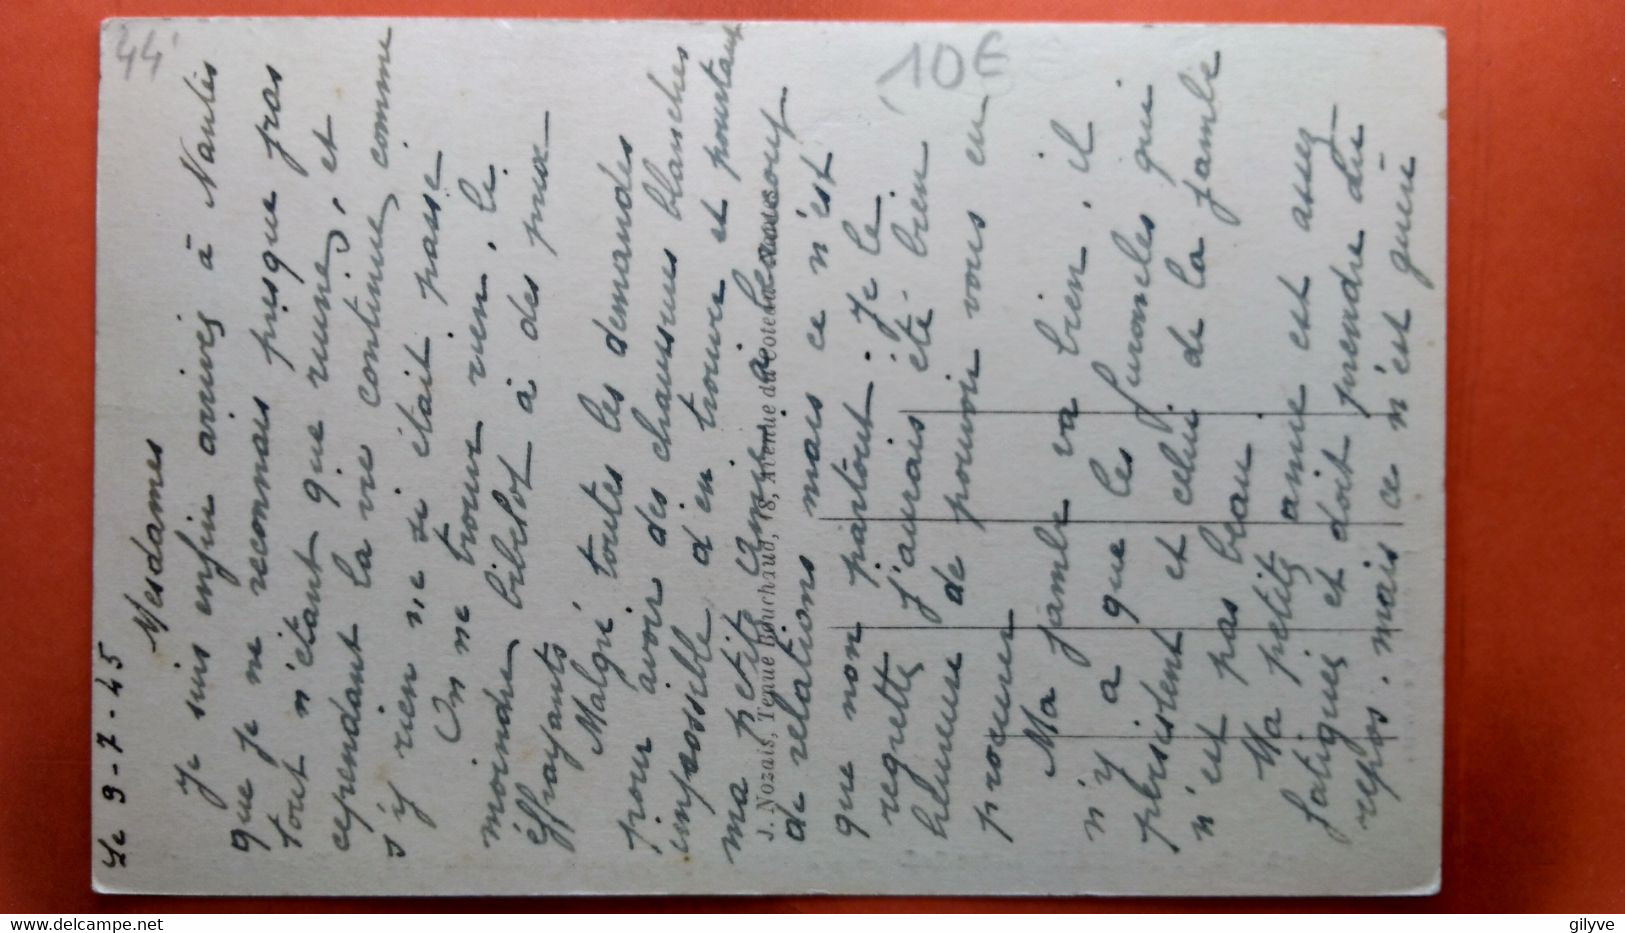 Le 9-7-45
Mesdames
Je suis enfin arrivés à Nantes
que je ne reconnais presque pas
tout n'étant que ruines, et
cependant la vie continue comme
s'y rien ne si était passé
On ne trouve rien. le
moindre bibelot à des prix
éffrayants
Malgré toutes les demandes
pour avoir des chaussures blanches
impossible d'en trouver et pourtant
ma petite amie a beaucoup
de relations mais ce n'est
que non partout. je le
regrette j'aurais été bien
heureuse de pouvoir vous en
procurer
Ma jambe va bien, il
n'y a que les furoncles qui
persistent et celui de la famille
n'est pas beau.
Ma petite amie est assez
fatiguée et doit prendre du
repos. mais ce n'est guère
J. Nozais, Tenue Bouchaud, 18, Avenue du Coteau
44
10€
gilyve
www.delcampe.net